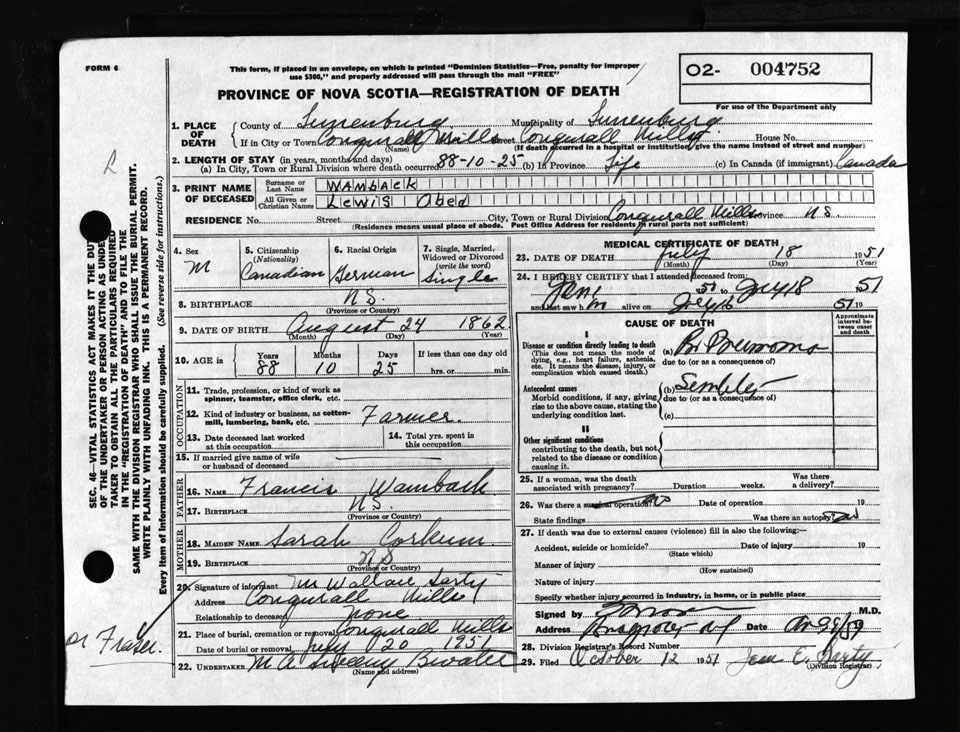 FORM 6
This form, if placed in an envelope, on which is printed "Dominion Statistics—Free, penalty for improper
use $300," and properly addressed will pass through the mail "FREE"
O2- 004752
For use of the Department only
PROVINCE OF NOVA SCOTIA—REGISTRATION OF DEATH
1. PLACE OF DEATH
County of Lunenburg Municipality of Lunenburg
If in City or Town Conquerall Mills Street Conquerall Mills House No.
(Name) (If death occurred in a hospital or institution, give the name instead of street and number)
2. LENGTH OF STAY (in years, months and days)
(a) In City, Town or Rural Division where death occurred 88-10-25 (b) In Province Life (c) In Canada (if immigrant) Canada
3. PRINT NAME OF DECEASED
Surname or Last Name WAMBACK
All Given or Christian Names Lewis Obed
RESIDENCE No. Street City, Town or Rural Division Conquerall Mills Province N.S.
(Residence means usual place of abode. Post Office Address for residents in rural parts not sufficient)
4. Sex M
5. Citizenship (Nationality) Canadian
6. Racial Origin German
7. Single, Married, Widowed or Divorced (write the word) Single
8. BIRTHPLACE N.S.
(Province or Country)
9. DATE OF BIRTH August 24 1862
(Month) (Day) (Year)
10. AGE in Years 88 Months 10 Days 25 If less than one day old hrs. or min.
OCCUPATION
11. Trade, profession, or kind of work as spinner, teamster, office clerk, etc.
12. Kind of industry or business, as cotton-mill, lumbering, bank, etc. Farmer
13. Date deceased last worked at this occupation
14. Total yrs. spent in this occupation
15. If married give name of wife or husband of deceased
FATHER
16. NAME Francis Wamback
17. BIRTHPLACE N.S.
(Province or Country)
MOTHER
18. MAIDEN NAME Sarah Corkum
19. BIRTHPLACE N.S.
(Province or Country)
20. Signature of informant Mr Wallace Sarty
Address Conquerall Mills
Relationship to deceased none
21. Place of burial, cremation or removal Conquerall Mills
Date of burial or removal July 20 1951
22. UNDERTAKER M A Sweeny Bwater
(Name and address)
Dr Fraser.
MEDICAL CERTIFICATE OF DEATH
23. DATE OF DEATH July 18 1951
(Month) (Day) (Year)
24. I HEREBY CERTIFY that I attended deceased from:
51 to July 18 1951
and last saw h m alive on 51 19
CAUSE OF DEATH
Approximate interval between onset and death
I
Disease or condition directly leading to death
(This does not mean the mode of dying, e.g., heart failure, asthenia, etc. It means the disease, injury, or complication which caused death.)
(a) Br Pneumonia
due to (or as a consequence of)
Antecedent causes
Morbid conditions, if any, giving rise to the above cause, stating the underlying condition last.
(b)
due to (or as a consequence of)
(c)
II
Other significant conditions
contributing to the death, but not related to the disease or condition causing it.
25. If a woman, was the death associated with pregnancy? Duration weeks. Was there a delivery?
26. Was there a surgical operation? no Date of operation 19
State findings Was there an autopsy?
27. If death was due to external causes (violence) fill in also the following:—
Accident, suicide or homicide? Date of injury 19
(State which)
Manner of injury
(How sustained)
Nature of injury
Specify whether injury occurred in industry, in home, or in public place
Signed by M.D.
Address Date
28. Division Registrar's Record Number
29. Filed October 12 1951 Jean E. Sarty
(Division Registrar)
SEC. 46—VITAL STATISTICS ACT MAKES IT THE DUTY
OF THE UNDERTAKER OR PERSON ACTING AS UNDER-
TAKER TO OBTAIN ALL THE PARTICULARS REQUIRED
IN THE "REGISTRATION OF DEATH" AND TO FILE THE
SAME WITH THE DIVISION REGISTRAR WHO SHALL ISSUE THE BURIAL PERMIT.
WRITE PLAINLY WITH UNFADING INK. THIS IS A PERMANENT RECORD.
Every item of information should be carefully supplied. (See reverse side for instructions.)